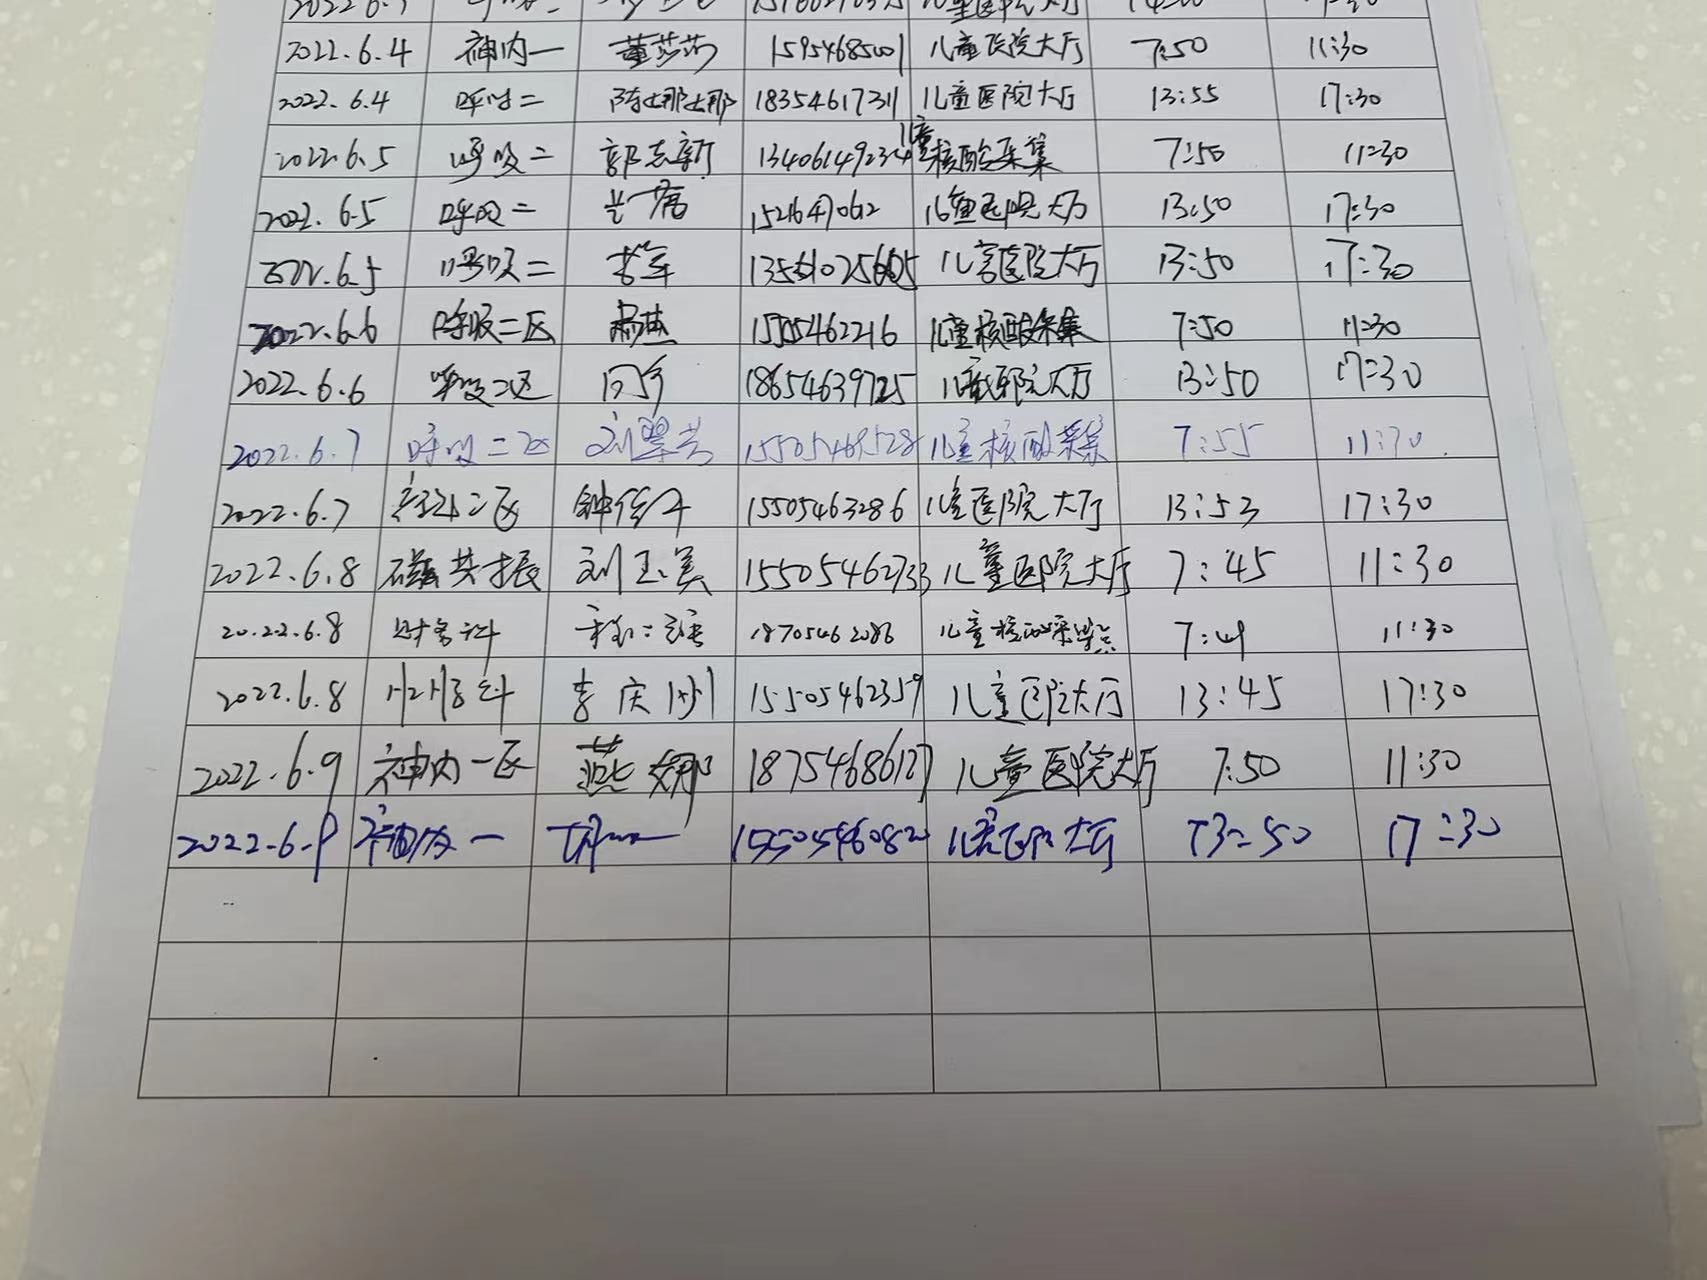 2022.6.4 神内一 董莎莎 15954685001 儿童医院大厅 7:50 11:30
2022.6.4 呼吸二 陈娜娜 18354617311 儿童医院大厅 13:55 17:30
2022.6.5 呼吸二 郭志新 13406149234 儿童核酸采集 7:50 11:30
2022.6.5 呼吸二 儿童医院大厅 13:50 17:30
2022.6.5 呼吸二 儿童医院大厅 13:50 17:30
2022.6.6 呼吸二区 15505462216 儿童核酸采集 7:50 11:30
2022.6.6 呼吸二区 18654639725 儿童医院大厅 13:50 17:30
2022.6.7 呼吸二区 刘翠兰 15505469528 儿童核酸采集 7:55 11:30
2022.6.7 二区 15505463286 儿童医院大厅 13:53 17:30
2022.6.8 磁共振 刘玉美 15505462733 儿童医院大厅 7:45 11:30
2022.6.8 财务科 18705462086 儿童核酸采集点 7:49 11:30
2022.6.8 15505462359 儿童医院大厅 13:45 17:30
2022.6.9 神内一区 燕娜 18754686127 儿童医院大厅 7:50 11:30
2022.6.9 神内一 15505460820 儿童医院大厅 13:50 17:30